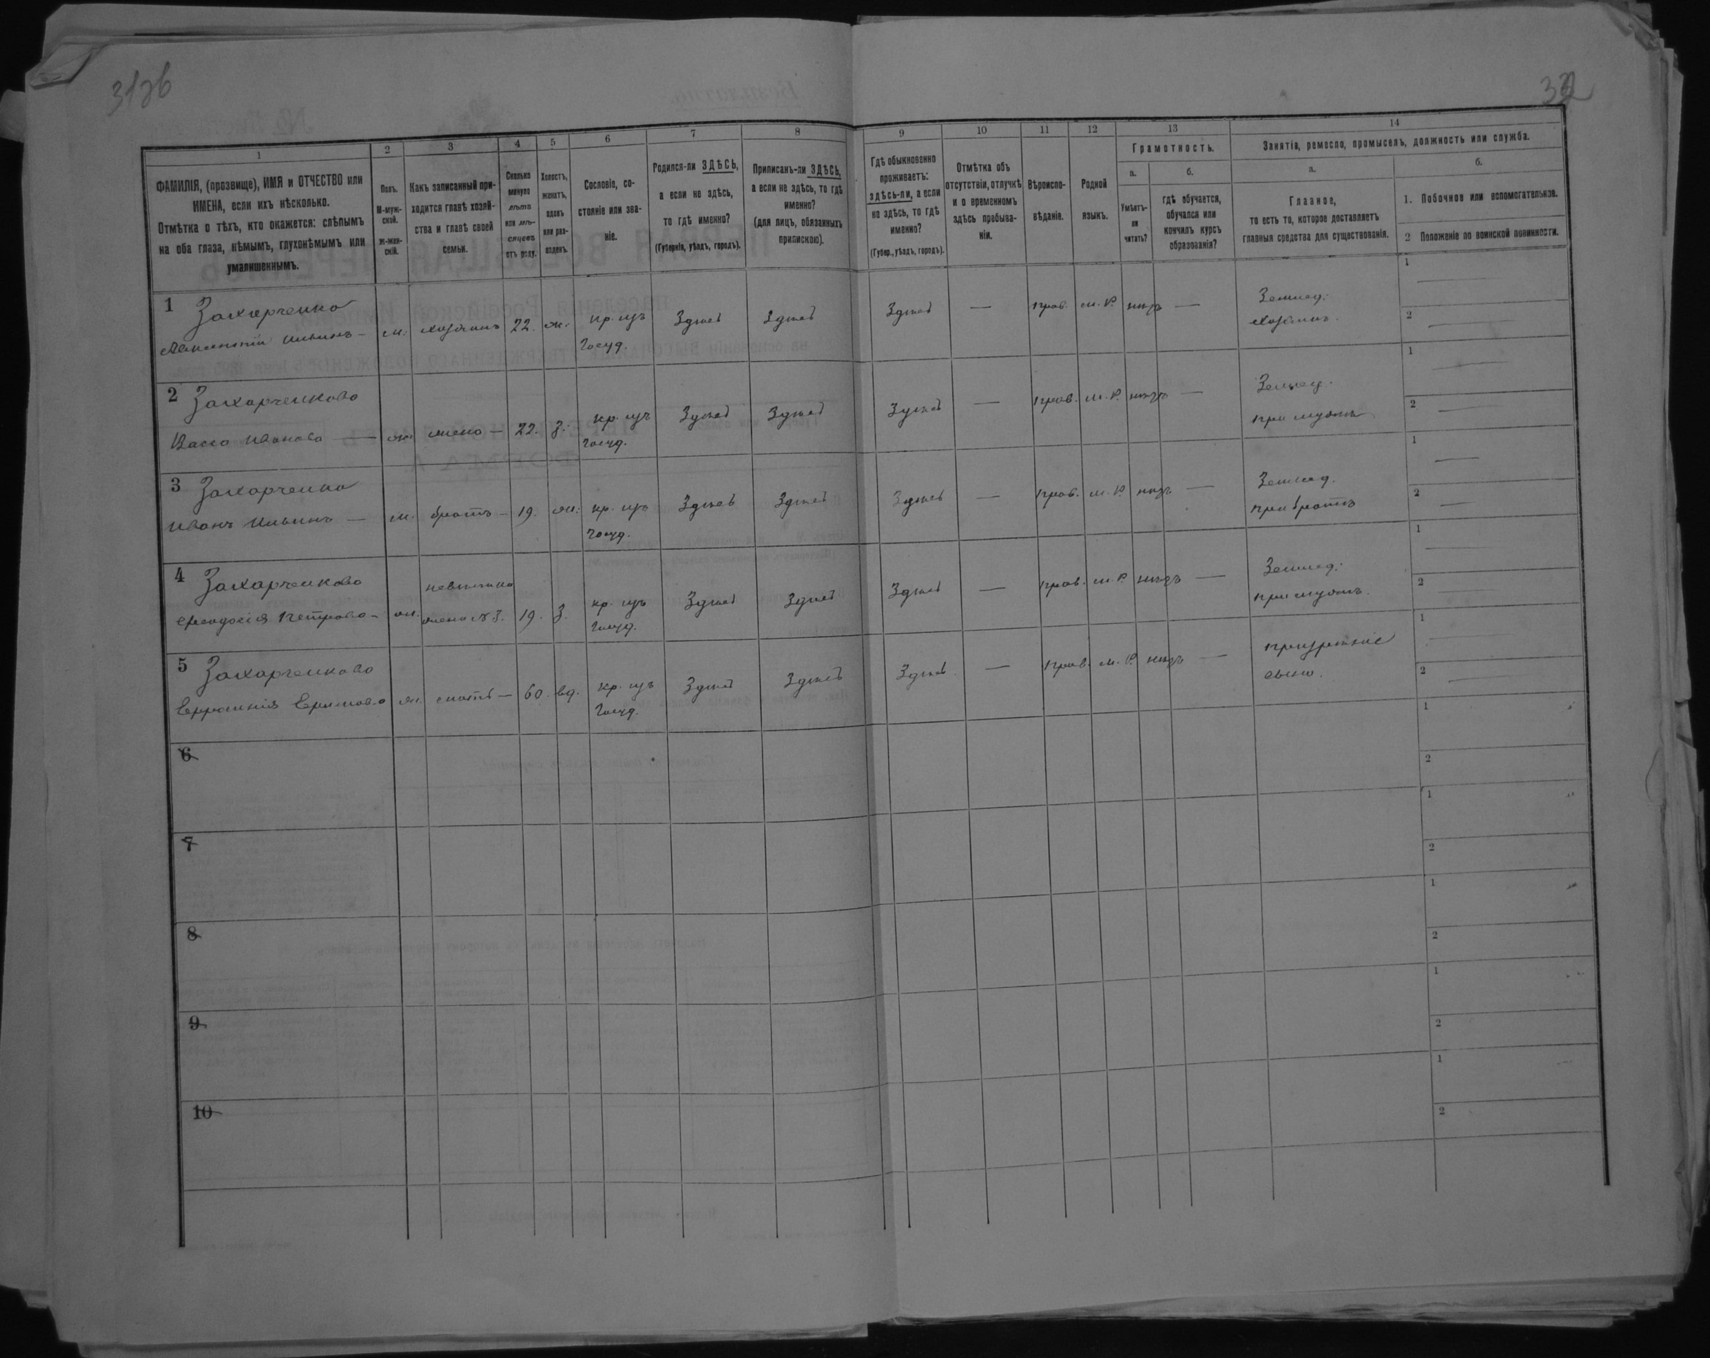 31об
32
1
2
3
4
5
6
7
8
9
10
11
12
13
14
ФАМИЛІЯ, (прозвище), ИМЯ и ОТЧЕСТВО или
ИМЕНА, если ихъ нѣсколько.
Отмѣтка о тѣхъ, кто окажется: слѣпымъ
на оба глаза, нѣмымъ, глухонѣмымъ или
умалишеннымъ.
Полъ.
М-муж-
ской.
Ж-жен-
скій.
Какъ записанный при-
ходится главѣ хозяй-
ства и главѣ своей
семьи.
Сколько
минуло
лѣтъ
или мѣ-
сяцевъ
отъ роду.
Холостъ,
женатъ,
вдовъ
или раз-
веденъ.
Сословіе, со-
стояніе или зва-
ніе.
Родился-ли ЗДѢСЬ,
а если не здѣсь,
то гдѣ именно?
(Губернія, уѣздъ, городъ).
Приписанъ-ли ЗДѢСЬ,
а если не здѣсь, то гдѣ
именно?
(для лицъ, обязанныхъ
припискою).
Гдѣ обыкновенно
проживаетъ:
здѣсь-ли, а если
не здѣсь, то гдѣ
именно?
(Губер., уѣздъ, городъ).
Отмѣтка объ
отсутствіи, отлучкѣ
и о временномъ
здѣсь пребыва-
ніи.
Вѣроиспо-
вѣданіе.
Родной
языкъ.
Грамотность.
а.
Умѣетъ-
ли
читать?
б.
гдѣ обучается,
обучался или
кончилъ курсъ
образованія?
Занятія, ремесло, промыселъ, должность или служба.
а.
Главное,
то есть то, которое доставляетъ
главныя средства для существованія.
б.
1. Побочное или вспомогательное.
2 Положеніе по воинской повинности.
1 Захарченко
Ильинъ — м. хозяинъ 22. ж. кр. изъ госуд. Здѣсь Здѣсь Здѣсь — прав. м. Р. нѣтъ — Землед. хозяинъ. 1 — 2 —
2 Захарченкова
Васса Иванова — ж. жена — 22. з. кр. изъ госуд. Здѣсь Здѣсь Здѣсь — прав. м. Р. нѣтъ — Землед. при мужѣ 1 — 2 —
3 Захарченко
Иванъ Ильинъ — м. братъ — 19. ж. кр. изъ госуд. Здѣсь Здѣсь Здѣсь — прав. м. Р. нѣтъ — Землед. при братѣ 1 — 2 —
4 Захарченкова
Ѳеодосія Петрова — ж. невѣстка жена №3. 19. з. кр. изъ госуд. Здѣсь Здѣсь Здѣсь — прав. м. Р. нѣтъ — Землед. при мужѣ. 1 — 2 —
5 Захарченкова
Ефросинія Ефимова ж. мать — 60. вд. кр. изъ госуд. Здѣсь Здѣсь Здѣсь — прав. м. Р. нѣтъ — призрѣніе сына. 1 — 2 —
6
1
2
7
1
2
8
1
2
9
1
2
10
1
2